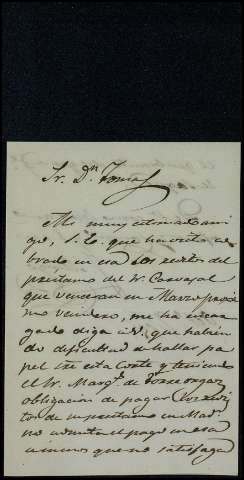 Sr. Dn. Tomas
Mi muy estimado ami
go, S. E. que ha visto co
brado en esa los reditos del
prestamo del Sr. Carvajal
que vencieron en Marzo proxi
mo venidero, me ha encar
gado diga a V. que habien
do dificultad de hallar pa
pel pa. esta Corte y teniendo
el Sr. Marqs. de Torreorgaz
obligacion de pagar los redi
tos de su prestamo en Mad
no admita el pago en esa
a menos que no satisfaga